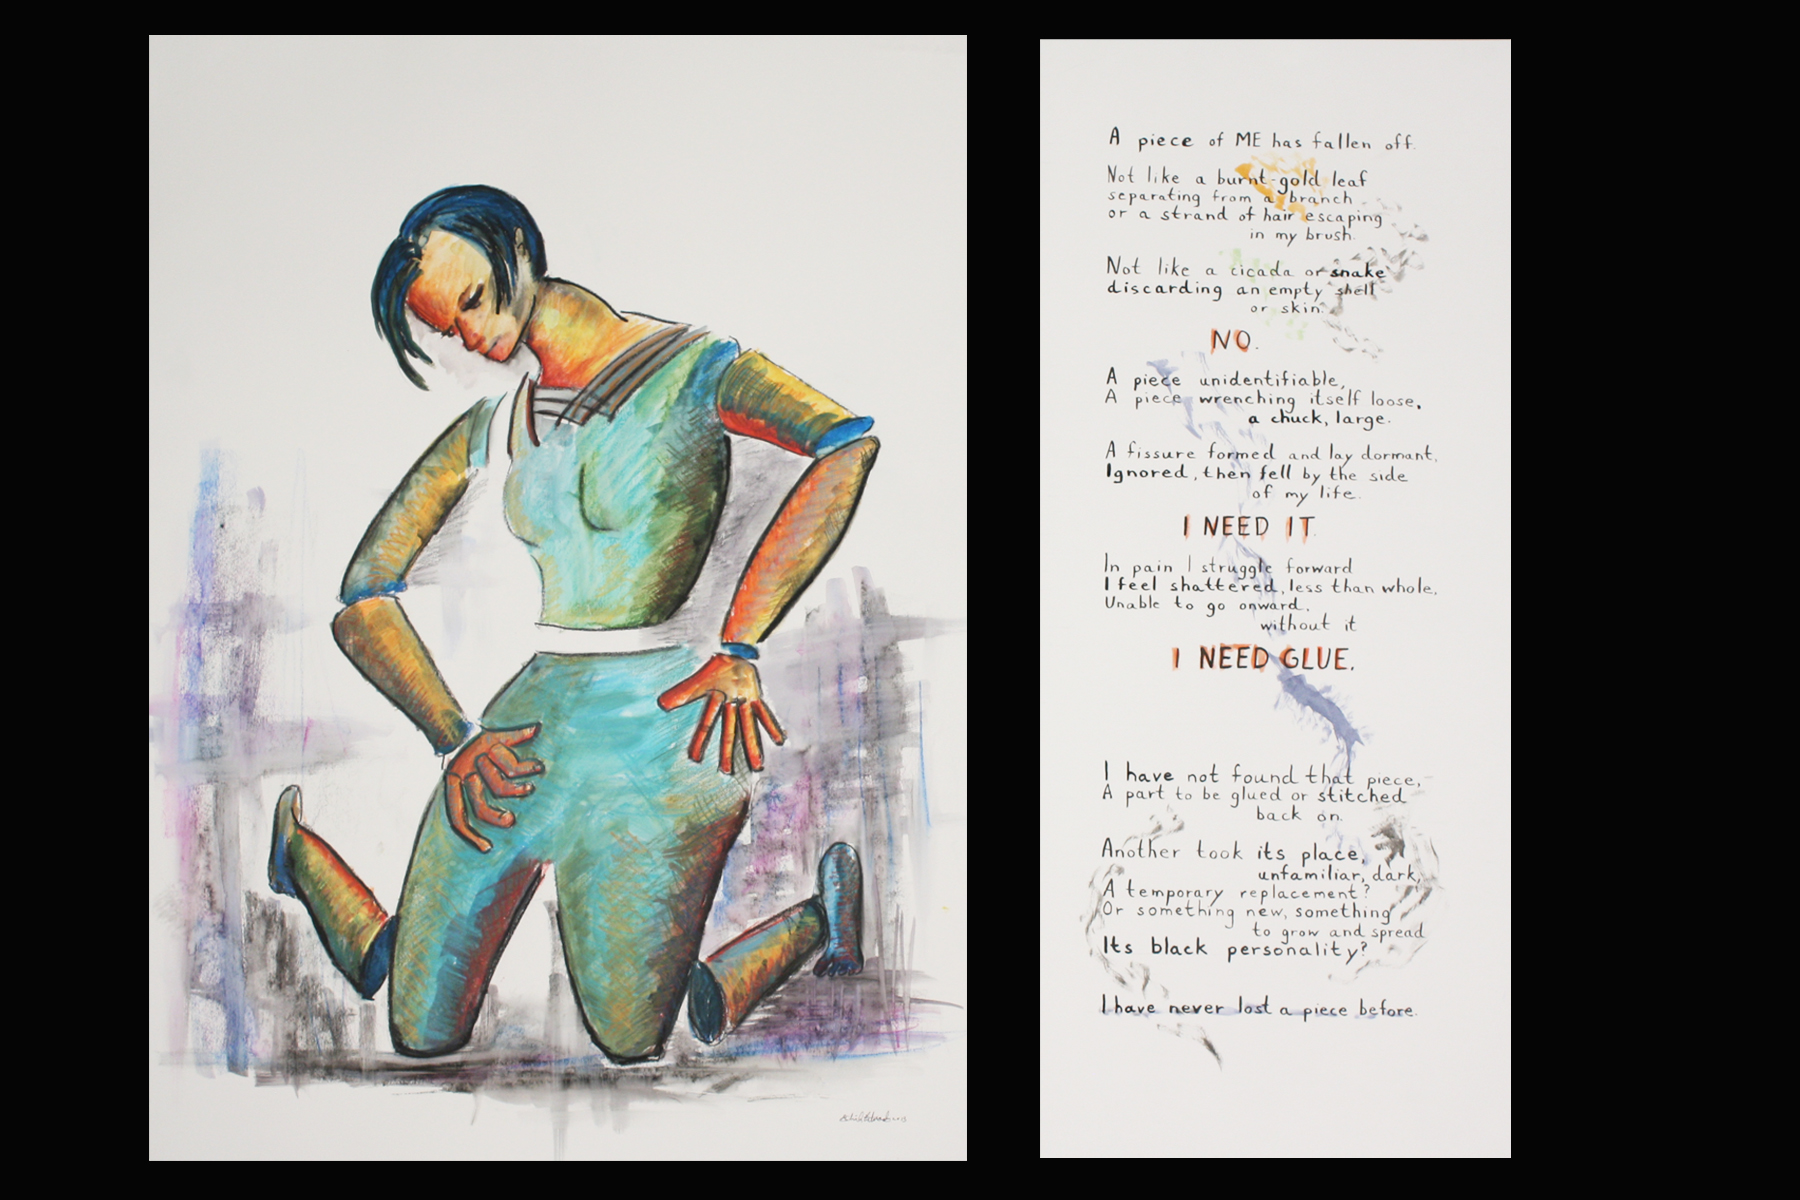 A piece of ME has fallen off.
Not like a burnt-gold leaf
separating from a branch
or a strand of hair escaping
in my brush.
Not like a cicada or snake
discarding an empty shell
or skin.
NO.
A piece unidentifiable,
A piece wrenching itself loose,
a chuck, large.
A fissure formed and lay dormant,
Ignored, then fell by the side
of my life.
I NEED IT.
In pain I struggle forward
I feel shattered, less than whole,
Unable to go onward,
without it
I NEED GLUE.
I have not found that piece,
A part to be glued or stitched
back on.
Another took its place,
unfamiliar, dark,
A temporary replacement?
Or something new, something
to grow and spread
Its black personality?
I have never lost a piece before.